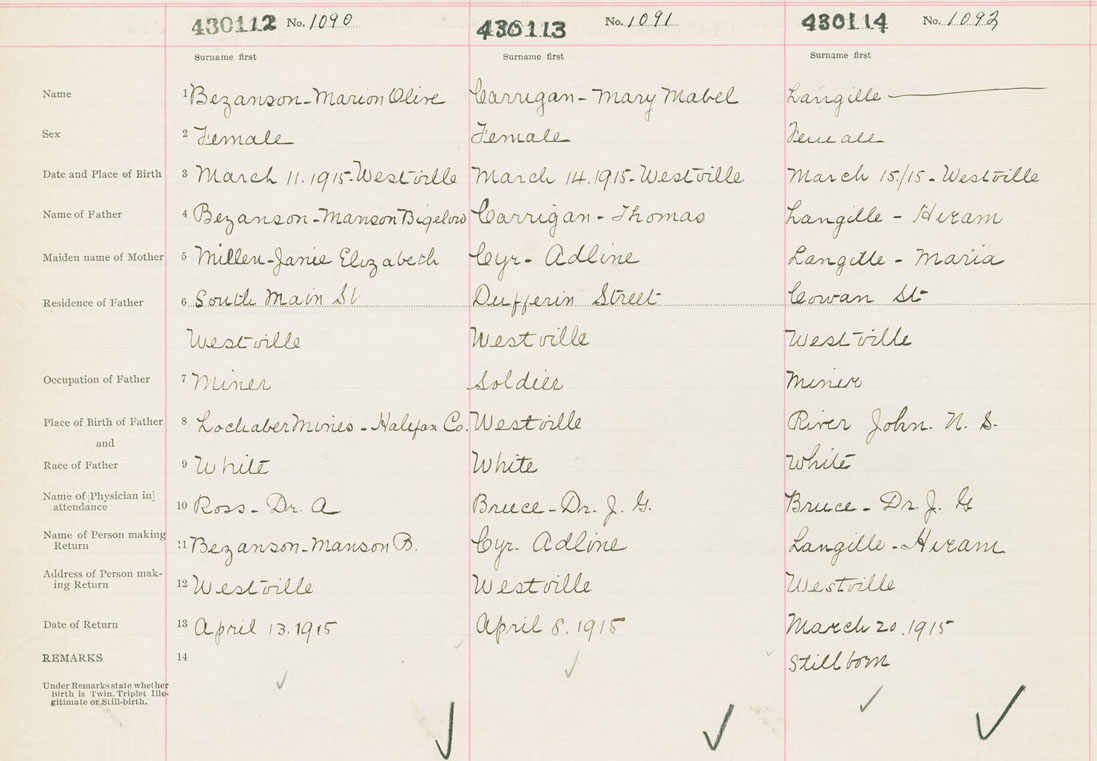 430112 No. 1090 430113 No. 1091 430114 No. 1092
Surname first Surname first Surname first
Name 1 Bezanson - Marion Olive Carrigan - Mary Mabel Langille
Sex 2 Female Female Female
Date and Place of Birth 3 March 11. 1915 - Westville March 14. 1915 - Westville March 15/15 - Westville
Name of Father 4 Bezanson - Manson Bigelow Carrigan - Thomas Langille - Hiram
Maiden name of Mother 5 Millen - Janie Elizabeth Cyr - Adline Langille - Maria
Residence of Father 6 South Main St Dufferin Street Cowan St
Westville Westville Westville
Occupation of Father 7 Miner Soldier Miner
Place of Birth of Father 8 Lochaber Mines - Halifax Co. Westville River John. N. S.
and
Race of Father 9 White White White
Name of [Physician in] attendance 10 Ross - Dr. A Bruce - Dr. J. G. Bruce - Dr. J. G
Name of Person making Return 11 Bezanson - Manson B. Cyr. Adline Langille - Hiram
Address of Person mak-
ing Return 12 Westville Westville Westville
Date of Return 13 April 13. 1915 April 8. 1915 March 20. 1915
REMARKS 14 Stillborn
Under Remarks state whether
Birth is Twin, Triplet Ille-
gitimate or Still-birth.